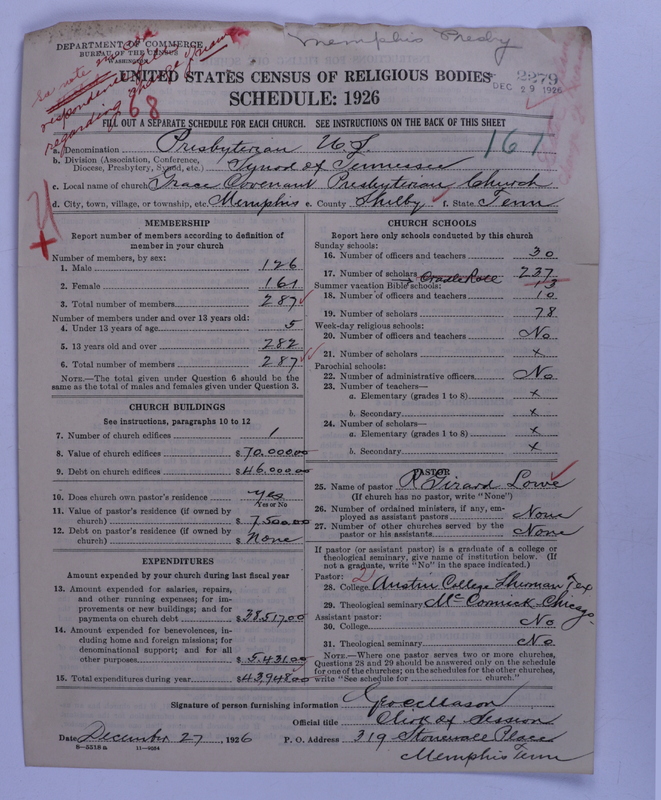 Memphis Presby
DEPARTMENT OF COMMERCE
BUREAU OF THE CENSUS
WASHINGTON
See note in
respondence
regarding
68
UNITED STATES CENSUS OF RELIGIOUS BODIES
SCHEDULE: 1926
2279
DEC 29 1926
FILL OUT A SEPARATE SCHEDULE FOR EACH CHURCH. SEE INSTRUCTIONS ON THE BACK OF THIS SHEET
167
a. Denomination Presbyterian U.S.
b. Division (Association, Conference, Diocese, Presbytery, Synod, etc.) Synod of Tennessee
c. Local name of church Grace Covenant Presbyterian Church
d. City, town, village, or township, etc. Memphis e. County Shelby f. State Tenn
MEMBERSHIP
Report number of members according to definition of
member in your church
Number of members, by sex:
1. Male 126
2. Female 161
3. Total number of members 287
Number of members under and over 13 years old:
4. Under 13 years of age 5
5. 13 years old and over 282
6. Total number of members 287
NOTE.—The total given under Question 6 should be
same as the total of males and females given under Question 3.
CHURCH BUILDINGS
See instructions, paragraphs 10 to 12
7. Number of church edifices 1
8. Value of church edifices $70,000.00
9. Debt on church edifices $46,000.00
10. Does church own pastor's residence Yes
Yes or No
11. Value of pastor's residence (if owned by
church) $7,500.00
12. Debt on pastor's residence (if owned by
church) $None
EXPENDITURES
Amount expended by your church during last fiscal year
13. Amount expended for salaries, repairs,
and other running expenses; for im-
provements or new buildings; and for
payments on church debt $38,517.00
14. Amount expended for benevolences, in-
cluding home and foreign missions; for
denominational support; and for all
other purposes $5,431.00
15. Total expenditures during year $43,948.00
CHURCH SCHOOLS
Report here only schools conducted by this church
Sunday schools:
16. Number of officers and teachers 30
17. Number of scholars 237
Cradle Roll 13
Summer vacation Bible schools:
18. Number of officers and teachers 10
19. Number of scholars 78
Week-day religious schools:
20. Number of officers and teachers No
21. Number of scholars x
Parochial schools:
22. Number of administrative officers No
23. Number of teachers—
a. Elementary (grades 1 to 8) x
b. Secondary x
24. Number of scholars—
a. Elementary (grades 1 to 8) x
b. Secondary x
PASTOR
25. Name of pastor R Girard Lowe
(If church has no pastor, write "None")
26. Number of ordained ministers, if any, em-
ployed as assistant pastors None
27. Number of other churches served by the
pastor or his assistants None
If pastor (or assistant pastor) is a graduate of a college or
theological seminary, give name of institution below. (If
not a graduate, write "No" in the space indicated.)
Pastor:
28. College Austin College Sherman Tex
29. Theological seminary McCormick Chicago
Assistant pastor:
30. College No
31. Theological seminary No
NOTE.—Where one pastor serves two or more churches,
Questions 28 and 29 should be answered only on the schedule
for one of the churches; on the schedules for the other churches,
write "See schedule for church."
Signature of person furnishing information Geo C Mason
Official title Clerk of Session
Date December 27, 1926 P. O. Address 319 Stonewall Place
8—5518a 11—9084
Memphis Tenn